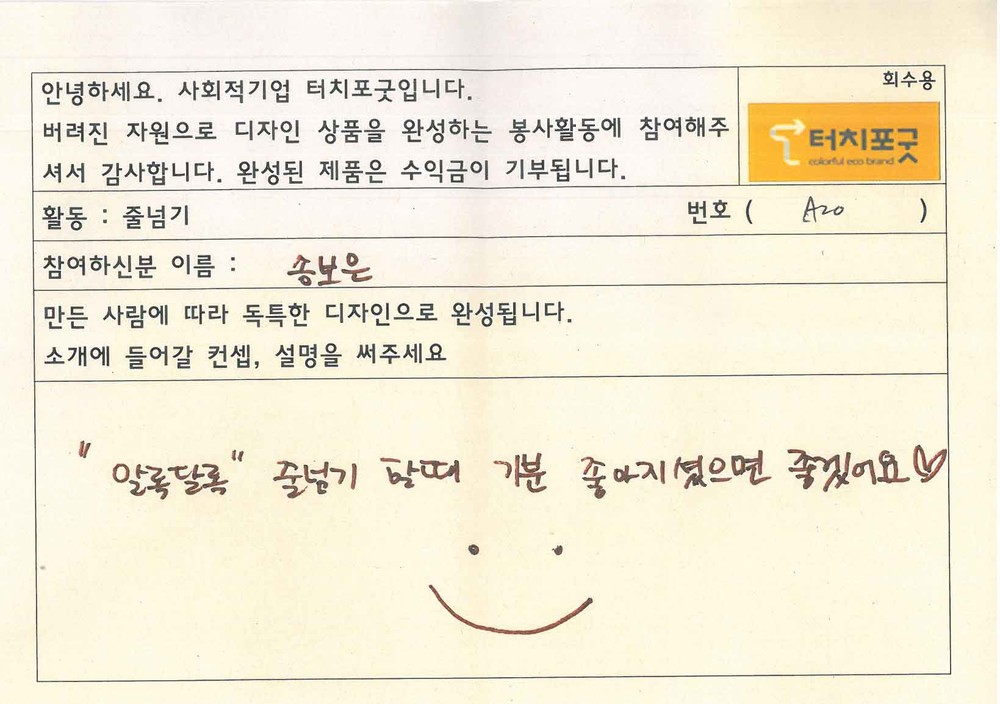 안녕하세요. 사회적기업 터치포굿입니다.
버려진 자원으로 디자인 상품을 완성하는 봉사활동에 참여해주
셔서 감사합니다. 완성된 제품은 수익금이 기부됩니다.
회수용
터치포굿
colorful eco brand
활동 : 줄넘기
번호 ( A20 )
참여하신분 이름 : 송보은
만든 사람에 따라 독특한 디자인으로 완성됩니다.
소개에 들어갈 컨셉, 설명을 써주세요
"알록달록" 줄넘기 할때 기분 좋아지셨으면 좋겠어요♡